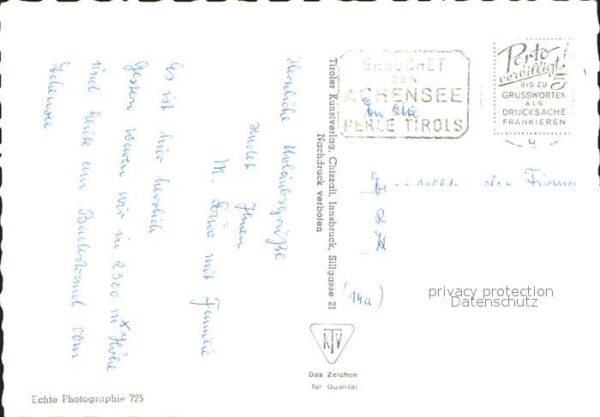 Herzliche Urlaubsgrüße
sendet Ihnen
M. mit Familie
Es ist hier herrlich
Gestern waren wir in 2300 m Höhe
und heute am Badestrand vom
Achensee
Tiroler Kunstverlag, Chizzali, Innsbruck, Sillgasse 21
Nachdruck verboten
BESUCHET
DEN
ACHENSEE
PERLE TIROLS
Porto
verbilligt!
5
BIS ZU
GRUSSWORTEN
ALS
DRUCKSACHE
FRANKIEREN
An die
der Firma
(14a)
privacy protection
Datenschutz
KTV
Das Zeichen
für Qualität
Echte Photographie 725